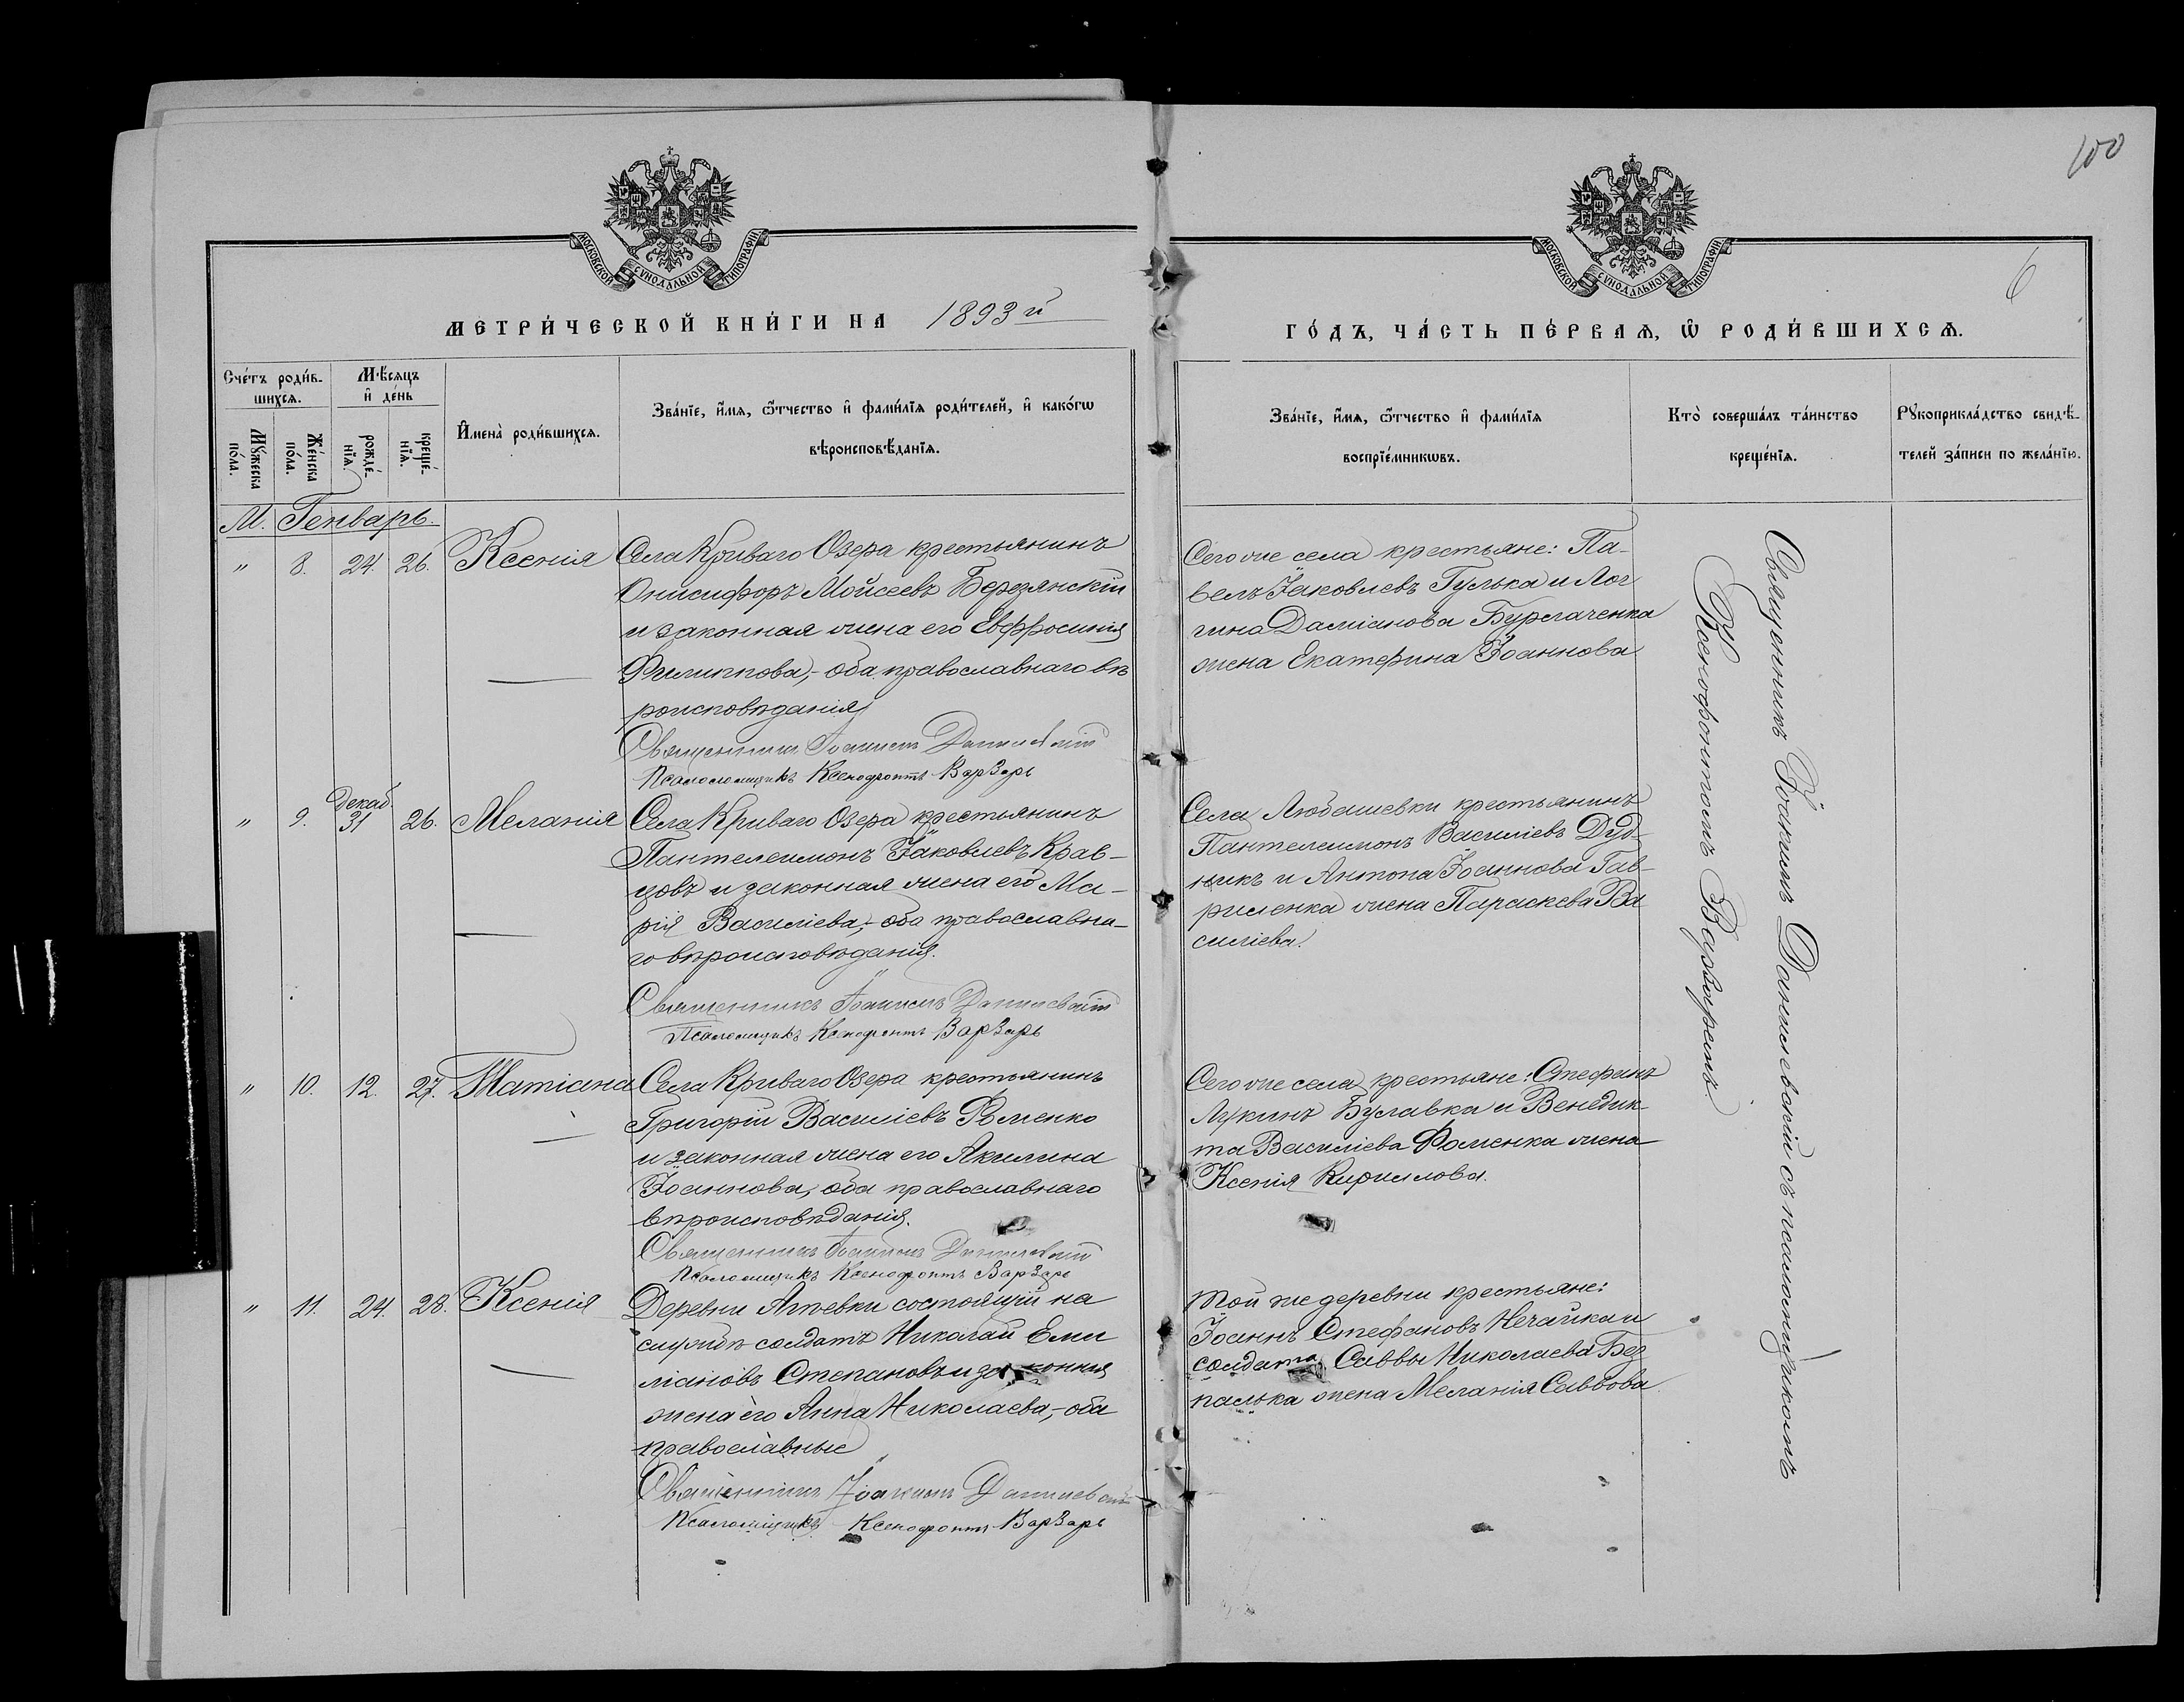 100
МОСКОВСКОЙ СѴНОДАЛЬНОЙ ТИПОГРАФІИ
МОСКОВСКОЙ СѴНОДАЛЬНОЙ ТИПОГРАФІИ
6
МЕТРИ́ЧЕСКОЙ КНИ́ГИ НА 1893 й
ГО́ДЪ, ЧА́СТЬ ПЕ́РВАѦ, Ѿ РОДИ́ВШИХСѦ.
Сче́тъ роди́в-
шихсѧ.
Мѣ́сѧцъ
и҆ де́нь
Мꙋ́жеска
по́ла.
Же́нска
по́ла.
рожде́-
нїѧ.
креще́-
нїѧ.
И҆мена̀ роди́вшихсѧ.
Зва́нїе, и҆́мѧ, ѻ҆́тчество и҆ фами́лїѧ роди́телей, и҆ како́гѡ
вѣроисповѣ́данїѧ.
Зва́нїе, и҆́мѧ, ѻ҆́тчество и҆ фами́лїѧ
воспрїе́мникѡвъ.
Кто̀ соверша́лъ та́инство
креще́нїѧ.
Рꙋкоприкла́дство свидѣ́-
телей за́писи по жела́нїю.
М. Генварь.
" 8. 24. 26. Ксенія
Села Криваго Озера крестьянинъ
Онисифоръ Мойсеевъ Березянскій
и законная жена его Евфросинія
Филиппова,- оба православнаго вѣ
роисповѣданія
Священникъ Іоакимъ Данилевскій
Псаломщикъ Ксенофонтъ Варзарь
Сего же села крестьяне: Па-
велъ Іаковлевъ Гулька и Лог
гина Даміанова Бурлаченка
жена Екатерина Іоаннова
" 9. Декаб. 31 26. Меланія
Села Криваго Озера крестьянинъ
Пантелеимонъ Іаковлевъ Крав-
цовъ и законная жена его Ма-
рія Василіева,- оба православна-
го вѣроисповѣданія.
Священникъ Іоакимъ Данилевскій
Псаломщикъ Ксенофонтъ Варзарь
Села Любашевки крестьянинъ
Пантелеимонъ Василіевъ Дуд-
никъ и Антона Іоаннова Гав-
риленка жена Параскева Ва
силіева.
" 10. 12. 27. Татіана
Села Криваго Озера крестьянинъ
Григорій Василіевъ Фоменко
и законная жена его Акилина
Іоаннова, оба православнаго
вѣроисповѣданія.
Священникъ Іоакимъ Данилевскій
Псаломщикъ Ксенофонтъ Варзарь
Сего же села крестьяне: Стефанъ
Лукинъ Булавка и Венедик
та Василіева Фоменка жена
Ксенія Кириллова.
" 11. 24. 28. Ксенія
Деревни состоящій на
службѣ солдатъ Николай Еми
ліановъ Степановъ и законная
жена его Анна Николаева,- оба
православные
Священникъ Іоакимъ Данилевскій
Псаломщикъ Ксенофонтъ Варзарь
Той же деревни крестьяне:
Іоаннъ Стефановъ Нечайка и
солдата Саввы Николаева Без
палька жена Меланія Саввова
Священникъ Іоакимъ Данилевскій съ псаломщикомъ
Ксенофонтомъ Варзаремъ.